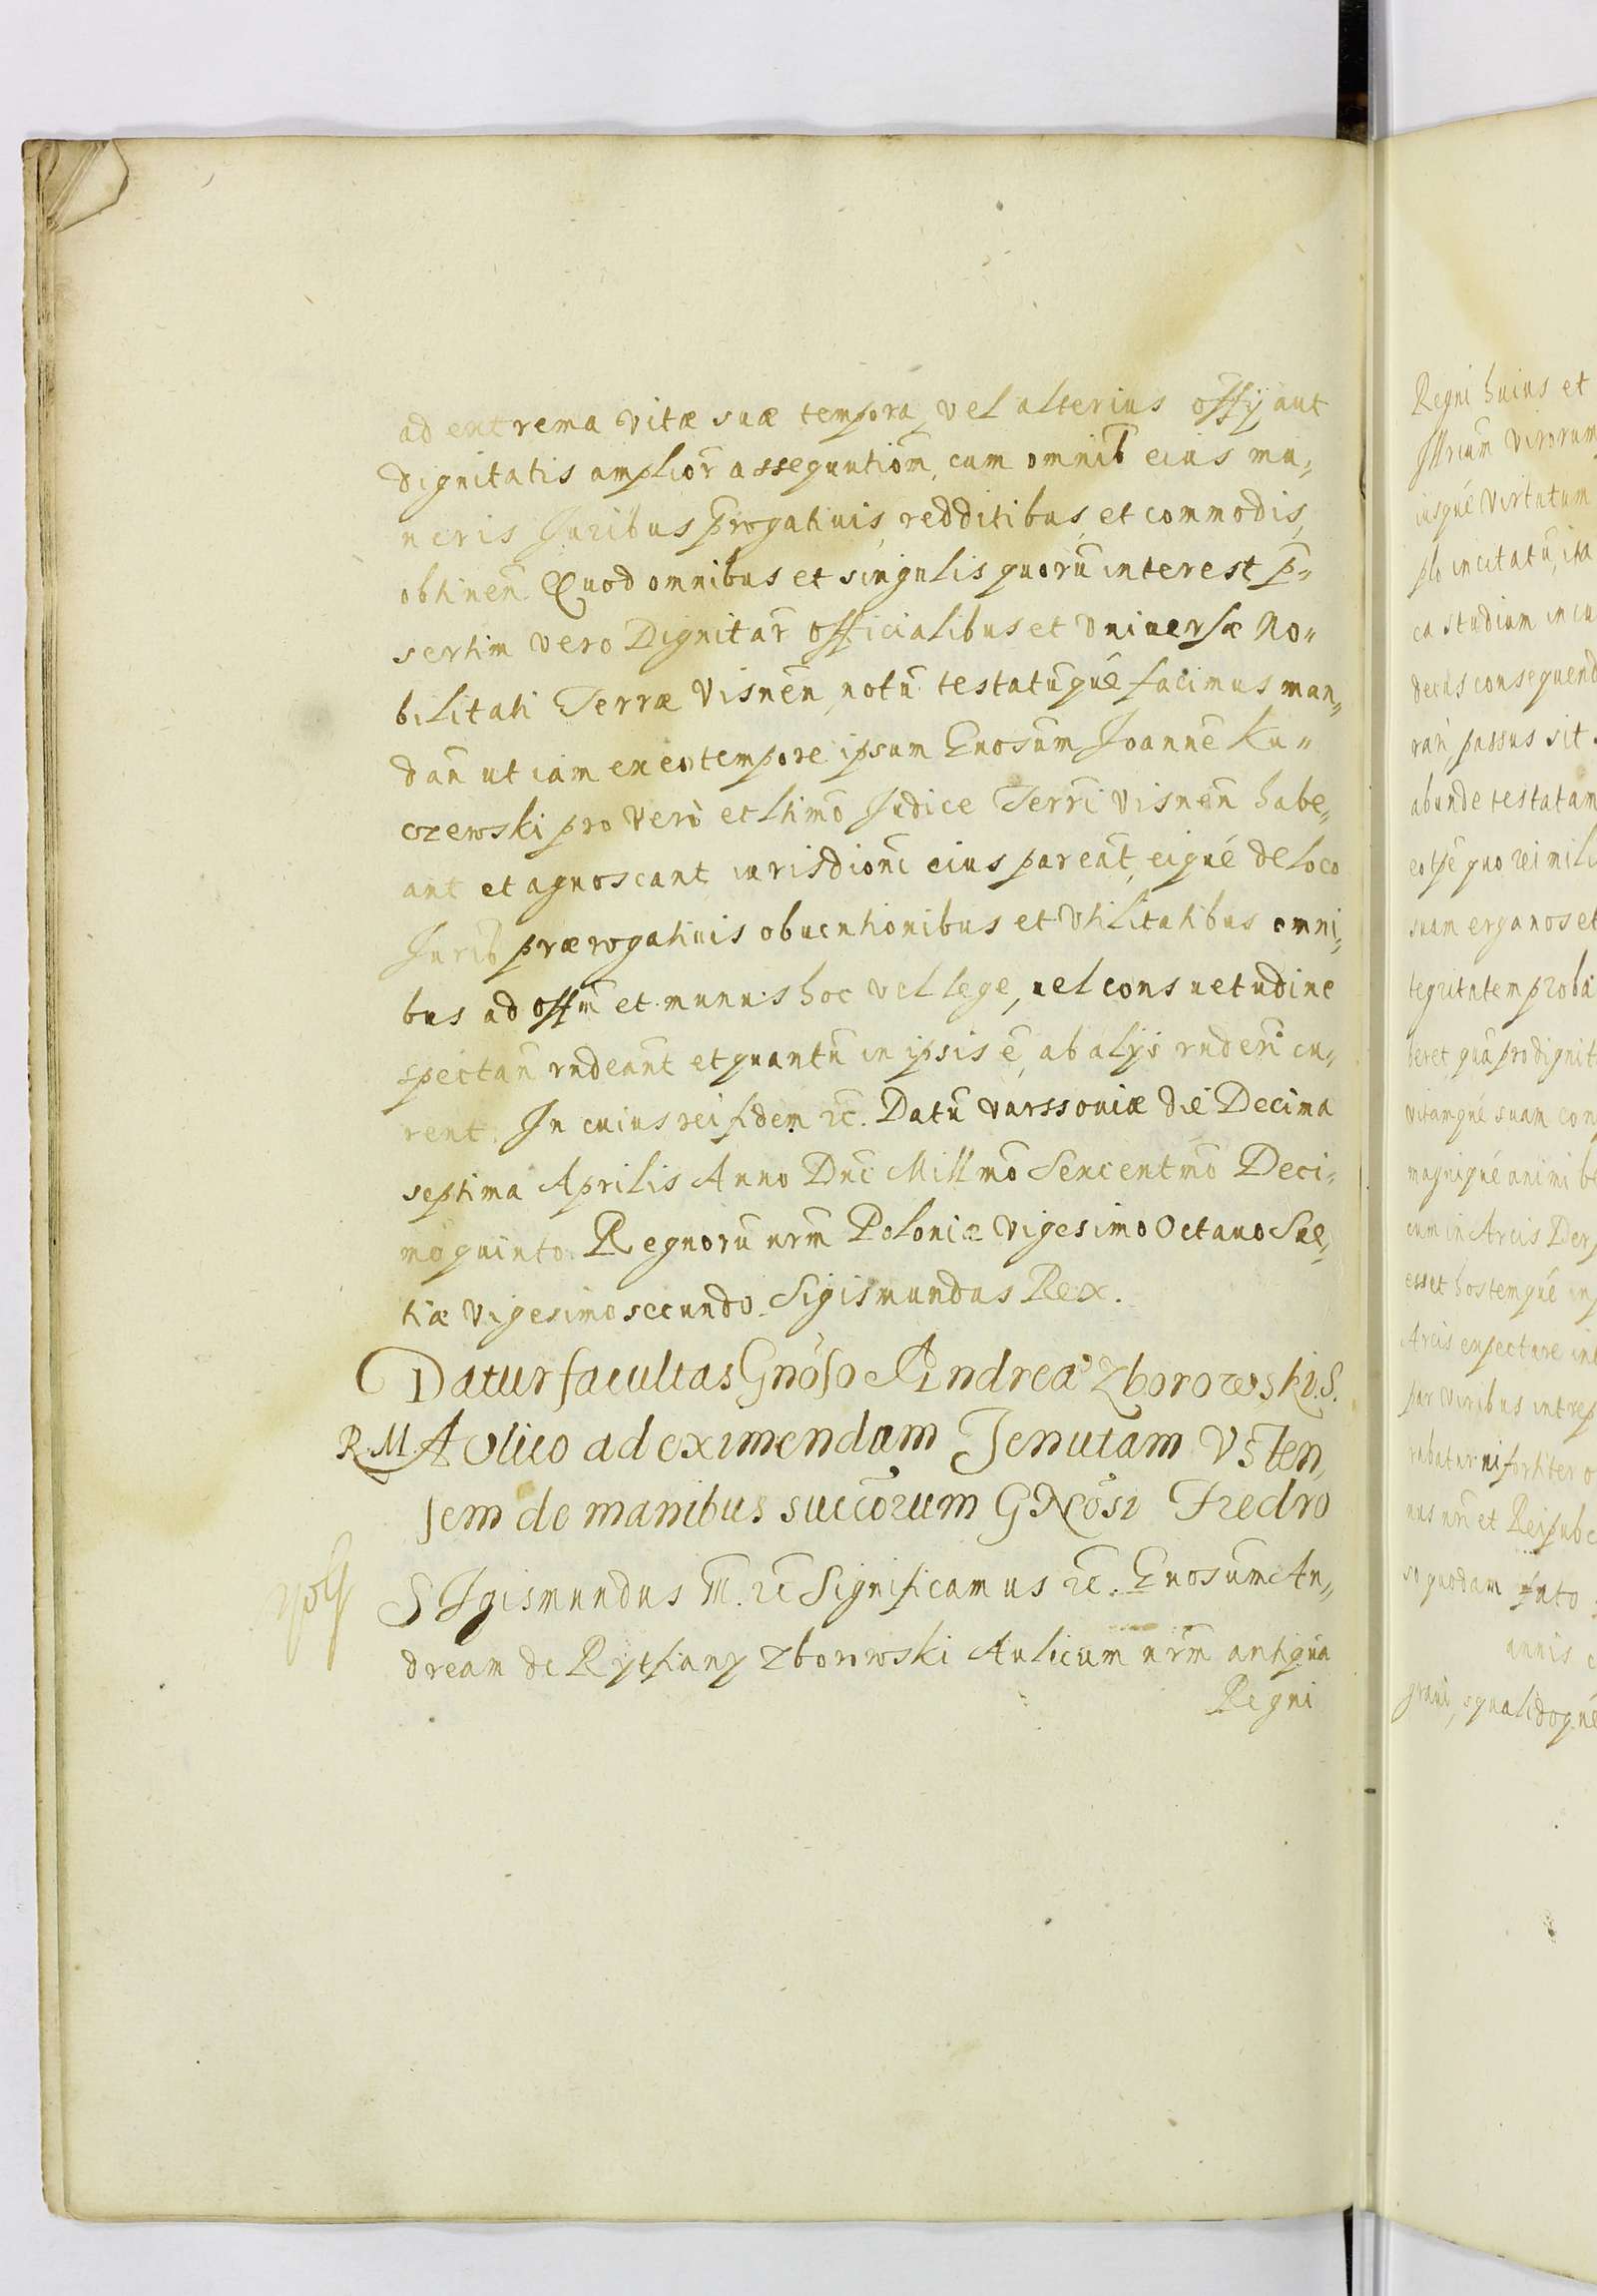 ad extrema vitæ suæ tempora, vel alterius offÿ aut
dignitatis amplior̃ assequution̄, cum omnib eius mu„
neris Juribus p̄rogatiuis, redditibus, et commodis,
obtinen̄. Quod omnibus et singulis quorū interest p̄„
sertim vero Dignitar̄ officialibus et vniuersæ No„
bilitati Terræ Visnen̄, notū testatūque facimus man„
dan̄ ut iam ex eo tempore ipsum Gnosum̄ Joanne Ku„
czewski pro vero et ltimo Judice Terri Visnen̄ habe„
ant et agnoscant, iurisdioni eius pareant, eique de loco
Jurib prærogatiuis obuentionibus et vtilitatibus omni„
bus ad offm̄ et munus hoc vel lege, uel consuetudine
spectan̄ rndeant et quantū in ipsis ē, ab alÿs rnderi cu„
rent. In cuius rei fidem ꝛc̄. Datū varssouiæ die Decima
septima Aprilis Anno Dnī Millmo Sexcentmo Deci„
mo quinto. Regnorū nrm̄ Poloniæ vigesimo octauo Sue„
tiæ vigesimo secundo. Sigismundus Rex.
Datur facultas Gnoso Andreæ Zborowski. S.
R. M. Aulico ad eximendam Tenutam Vsten„
sem de manibus succorum GNosi Fredro
SIgismundus III. ꝛc̄ Significamus ꝛc̄. Gnosum̄ An„
dream de Rytfiany Zborowski Aulicum nrm̄ antiqua
Regni
Regni huius et
Illrium virorum
iusque virtutum
plo incitatū, ita
ea studium incu
decus consequend
ran passus sit.
abunde testatam
suam erga nos et
tegritatem proba
beret quā pro dignit
vitamque suam con
magnique animi be
cum in Arcis Der
esset hostemque
Arcis expectare
par viribus intrep
rabatur ni fortiter o
nus nrī et Reipub
so quodam
annis
graui, squalidoque